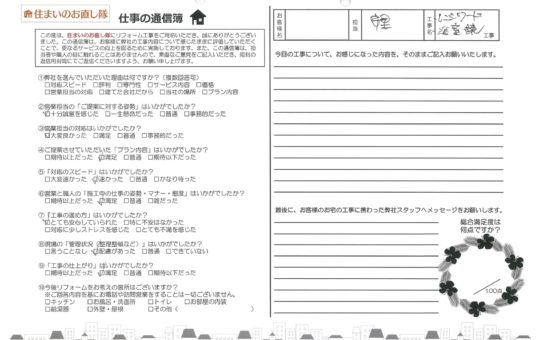 住まいのお直し隊 仕事の通信簿
この度は、住まいのお直し隊にリフォーム工事をご用命いただき、誠にありがとうござい
ました。この通信簿は、お客様に弊社の工事内容について感じたままに評価していただく
ことで、更なるサービスの向上を図るために実施しております。また、この通信簿は、担
当者や職人の目に触れることはありませんので、率直なご意見をご記入いただき、
返信用封筒にてご返信くださいますよう、お願い申し上げます。
①弊社を選んでいただいた理由は何ですか?(複数回答可)
□対応スピード □評判 □専門性 □サービス内容 □価格
□営業担当の対応 □建てた会社だから □当社の場所 □プラン内容
②営業担当の「ご提案に対する姿勢」はいかがでしたか?
□十分誠意を感じた □一生懸命だった □普通 □事務的だった
③営業担当の対応はいかがでしたか?
□大変良かった □満足 □普通 □事務的だった
④ご提案させていただいた「プラン内容」はいかがでしたか?
□期待以上だった □満足 □普通 □期待以下だった
⑤「対応のスピード」はいかがでしたか?
□大変速かった □速かった □普通 □かなり待った
⑥営業と職人の「施工中の仕事の姿勢・マナー・態度」はいかがでしたか?
□期待以上だった □満足 □普通 □期待以下だった
⑦「工事の進め方」はいかがでしたか?
□とても安心していられた □特に不安はなかった
□対応に少しストレスを感じた □とても不満を感じた
⑧現場の「管理状況(整理整頓など)」はいかがでしたか?
□言うことなし □配慮があった □普通 □できていない
⑨「工事の仕上がり」はいかがでしたか?
□期待以上だった □満足 □普通 □期待以下だった
⑩今後リフォームをお考えの箇所はございますか?
※ご回答内容を基にお電話や訪問営業をすることは一切ございません。
□キッチン □お風呂・洗面所 □トイレ □お部屋の内装
□給湯器 □外壁・屋根 □その他(
お客様名
担当
工事名
工事
今回の工事について、お感じになった内容を、そのままご記入お願いいたします。
最後に、お客様のお宅の工事に携わった弊社スタッフへメッセージをお願いします。
総合満足度は
何点ですか?
/100点